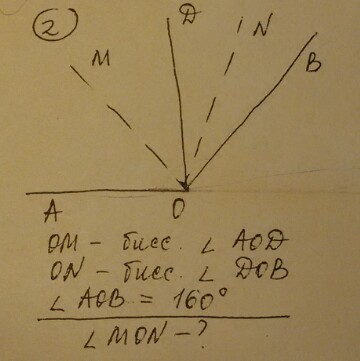 2
M
D
N
B
A
O
OM - бисс. ∠ AOD
ON - бисс. ∠ DOB
∠ AOB = 160°
∠ MON - ?